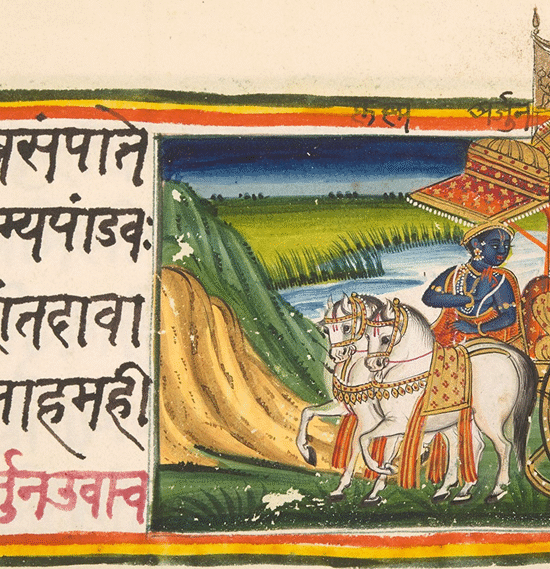 अर्जुन
त्रसंपाते
म्यपांडवः
तदावा
माहमही
र्जुनउवाच